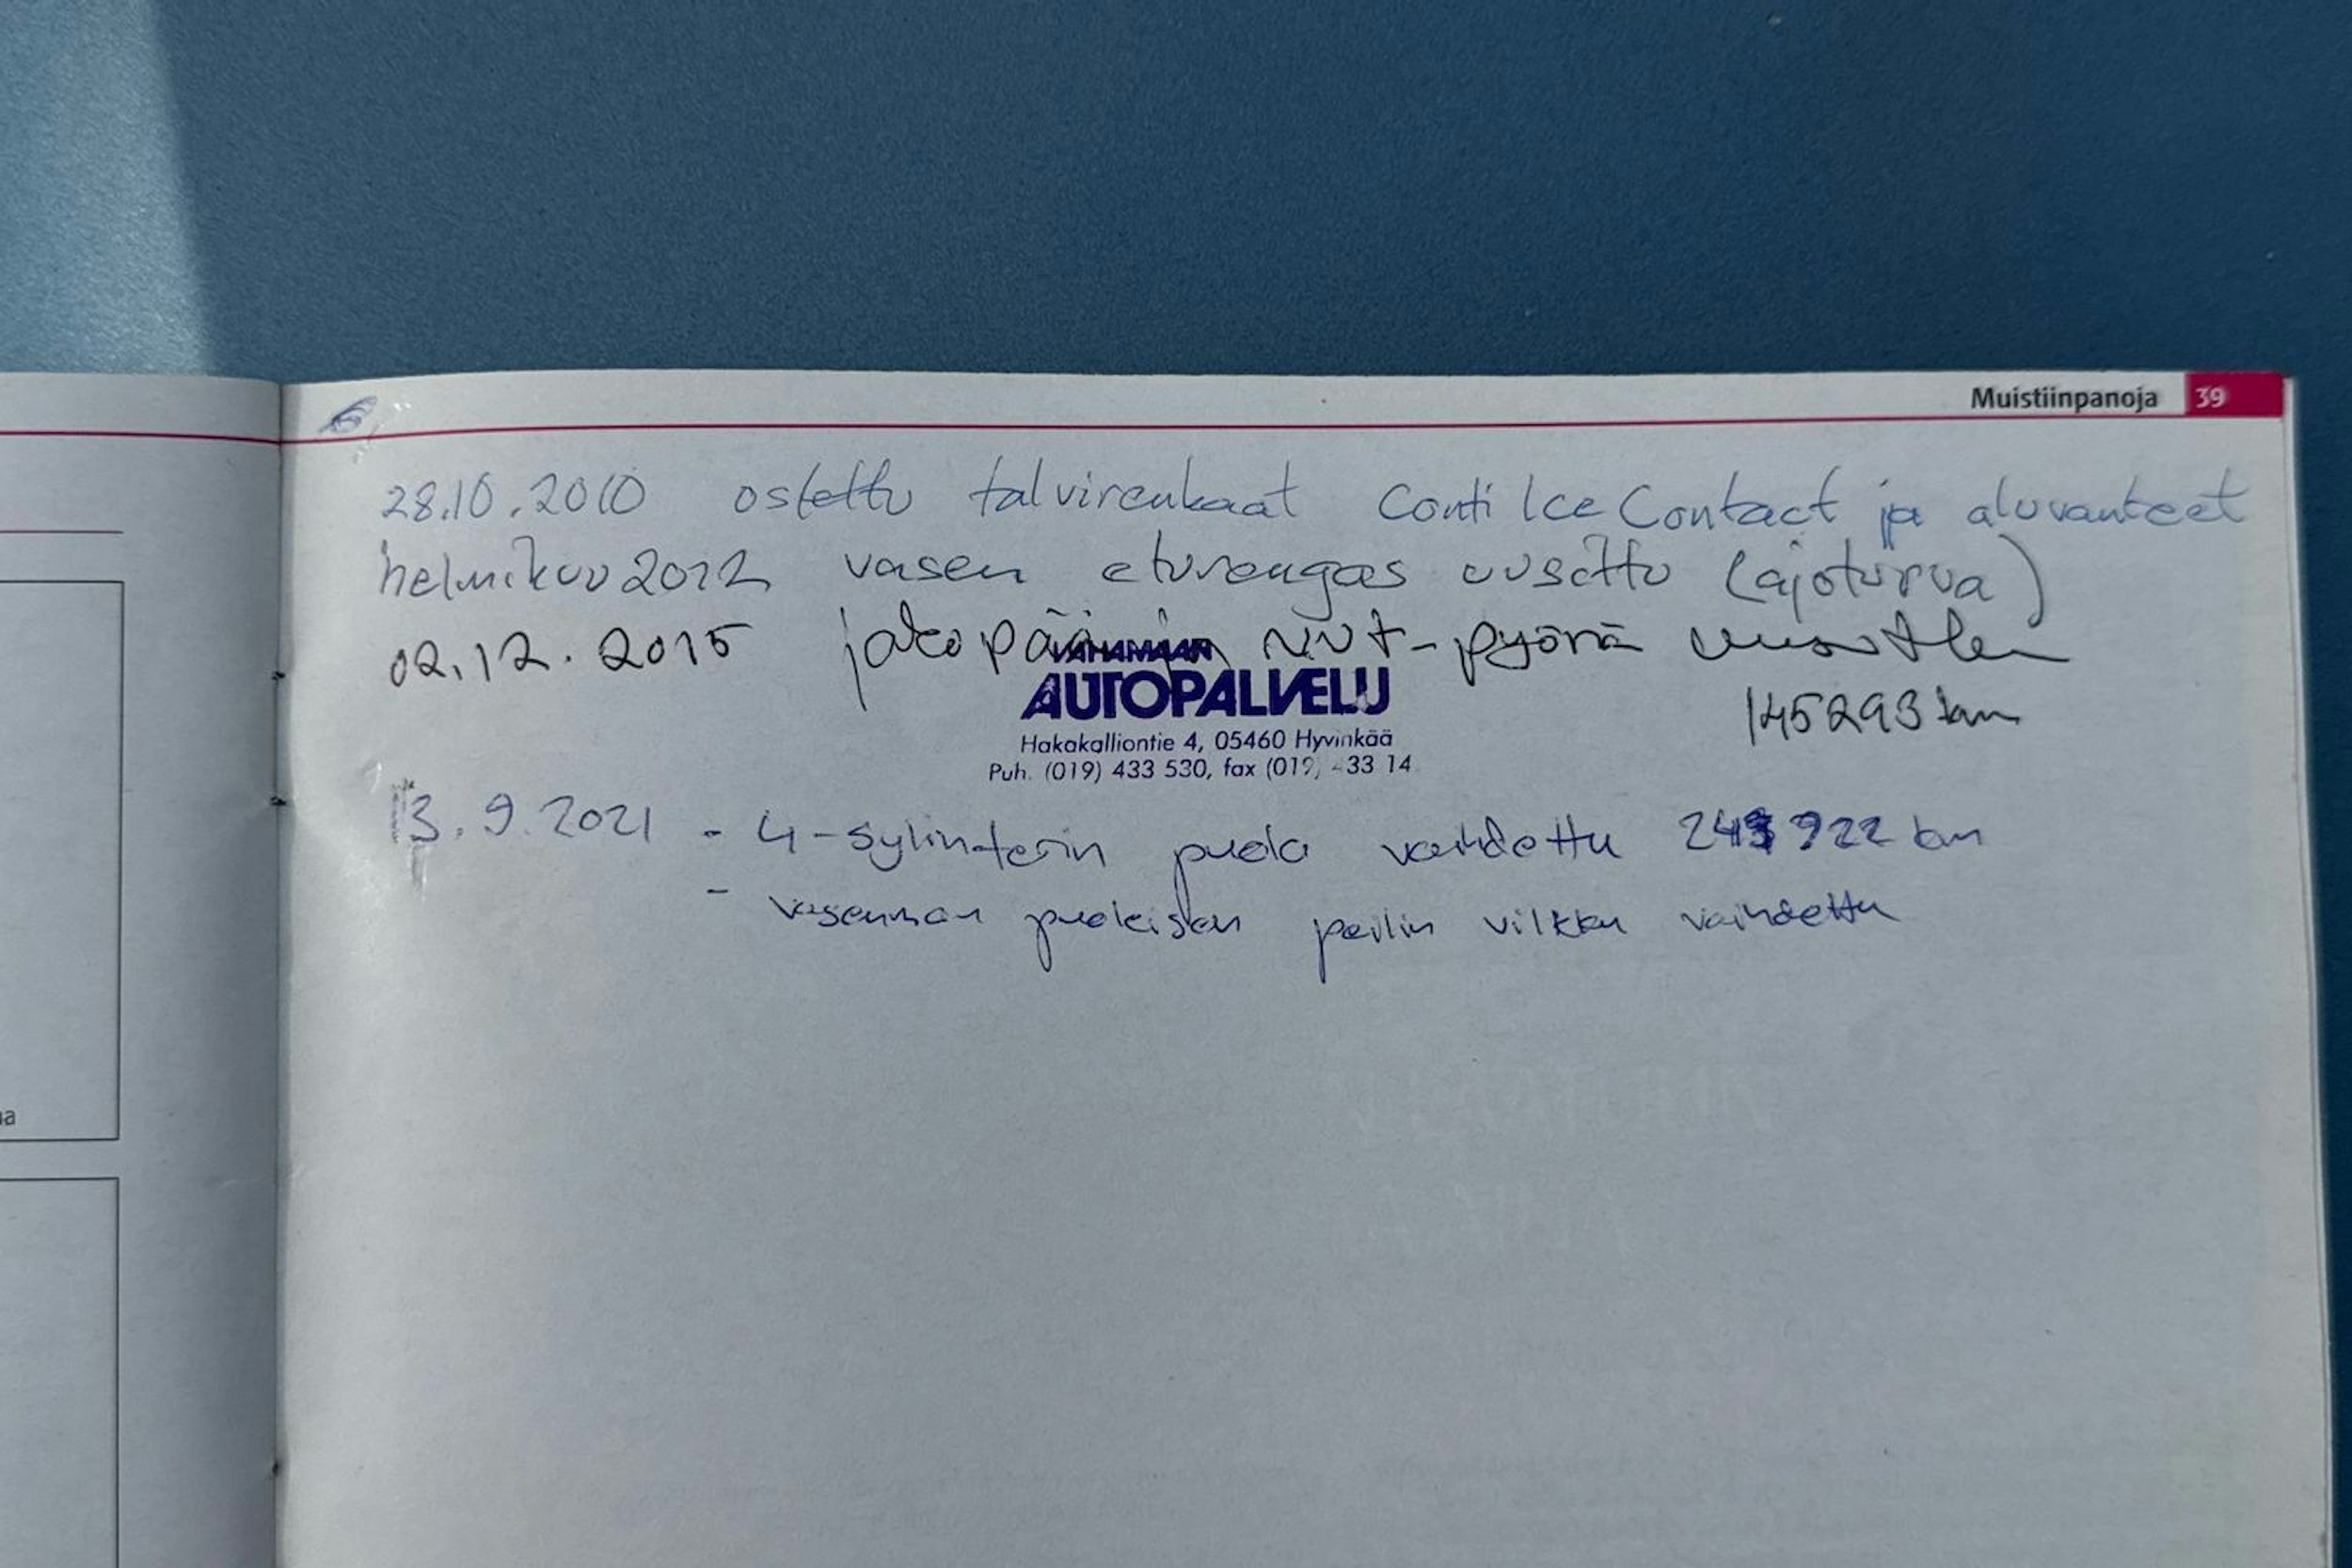 Muistiinpanoja 39
28.10.2010 ostettu talvirenkaat Conti Ice Contact ja aluvanteet
helmikuu 2012 vasen eturengas uusittu (ajoturva)
02.12.2015 jakopään ja VVT-pyörä uusittu
VÄHÄMAAN
AUTOPALVELU
145293 km
Hakakalliontie 4, 05460 Hyvinkää
Puh. (019) 433 530, fax (019) 433 14
13.9.2021 - 4-sylinterin puola vaihdettu 922 km
- vasemman puoleisen peilin vilkku vaihdettu
na